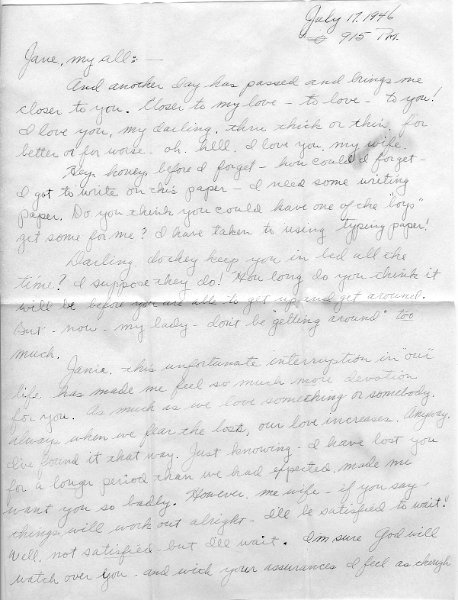 July 17, 1946
9:15 P.M.
Jane, my all: —
And another day has passed and brings me
closer to you. Closer to my love – to love – to you!
I love you, my darling, thru thick or thin, for
better or for worse. oh, hell, I love you, my wife.
Hey, honey, before I forget – how could I forget –
I got to write on this paper – I need some writing
paper. Do you think you could have one of the "boys"
get some for me? I have taken to using typing paper!
Darling do they keep you in bed all the
time? I suppose they do! How long do you think it
will be before you are able to get up and get around.
But – now – my lady – don't be "getting around" too
much.
Janie, this unfortunate interruption in "our"
life, has made me feel so much more devotion
for you. As much as we love something or somebody,
always when we fear the loss, our love increases. Anyway,
I've found it that way. Just knowing I have lost you
for a longer period than we had expected, made me
want you so badly. However, me wife – if you say
things will work out alright – I'll be satisfied to wait!
Well, not satisfied – but I'll wait. I'm sure God will
watch over you – and with your assurances I feel as though